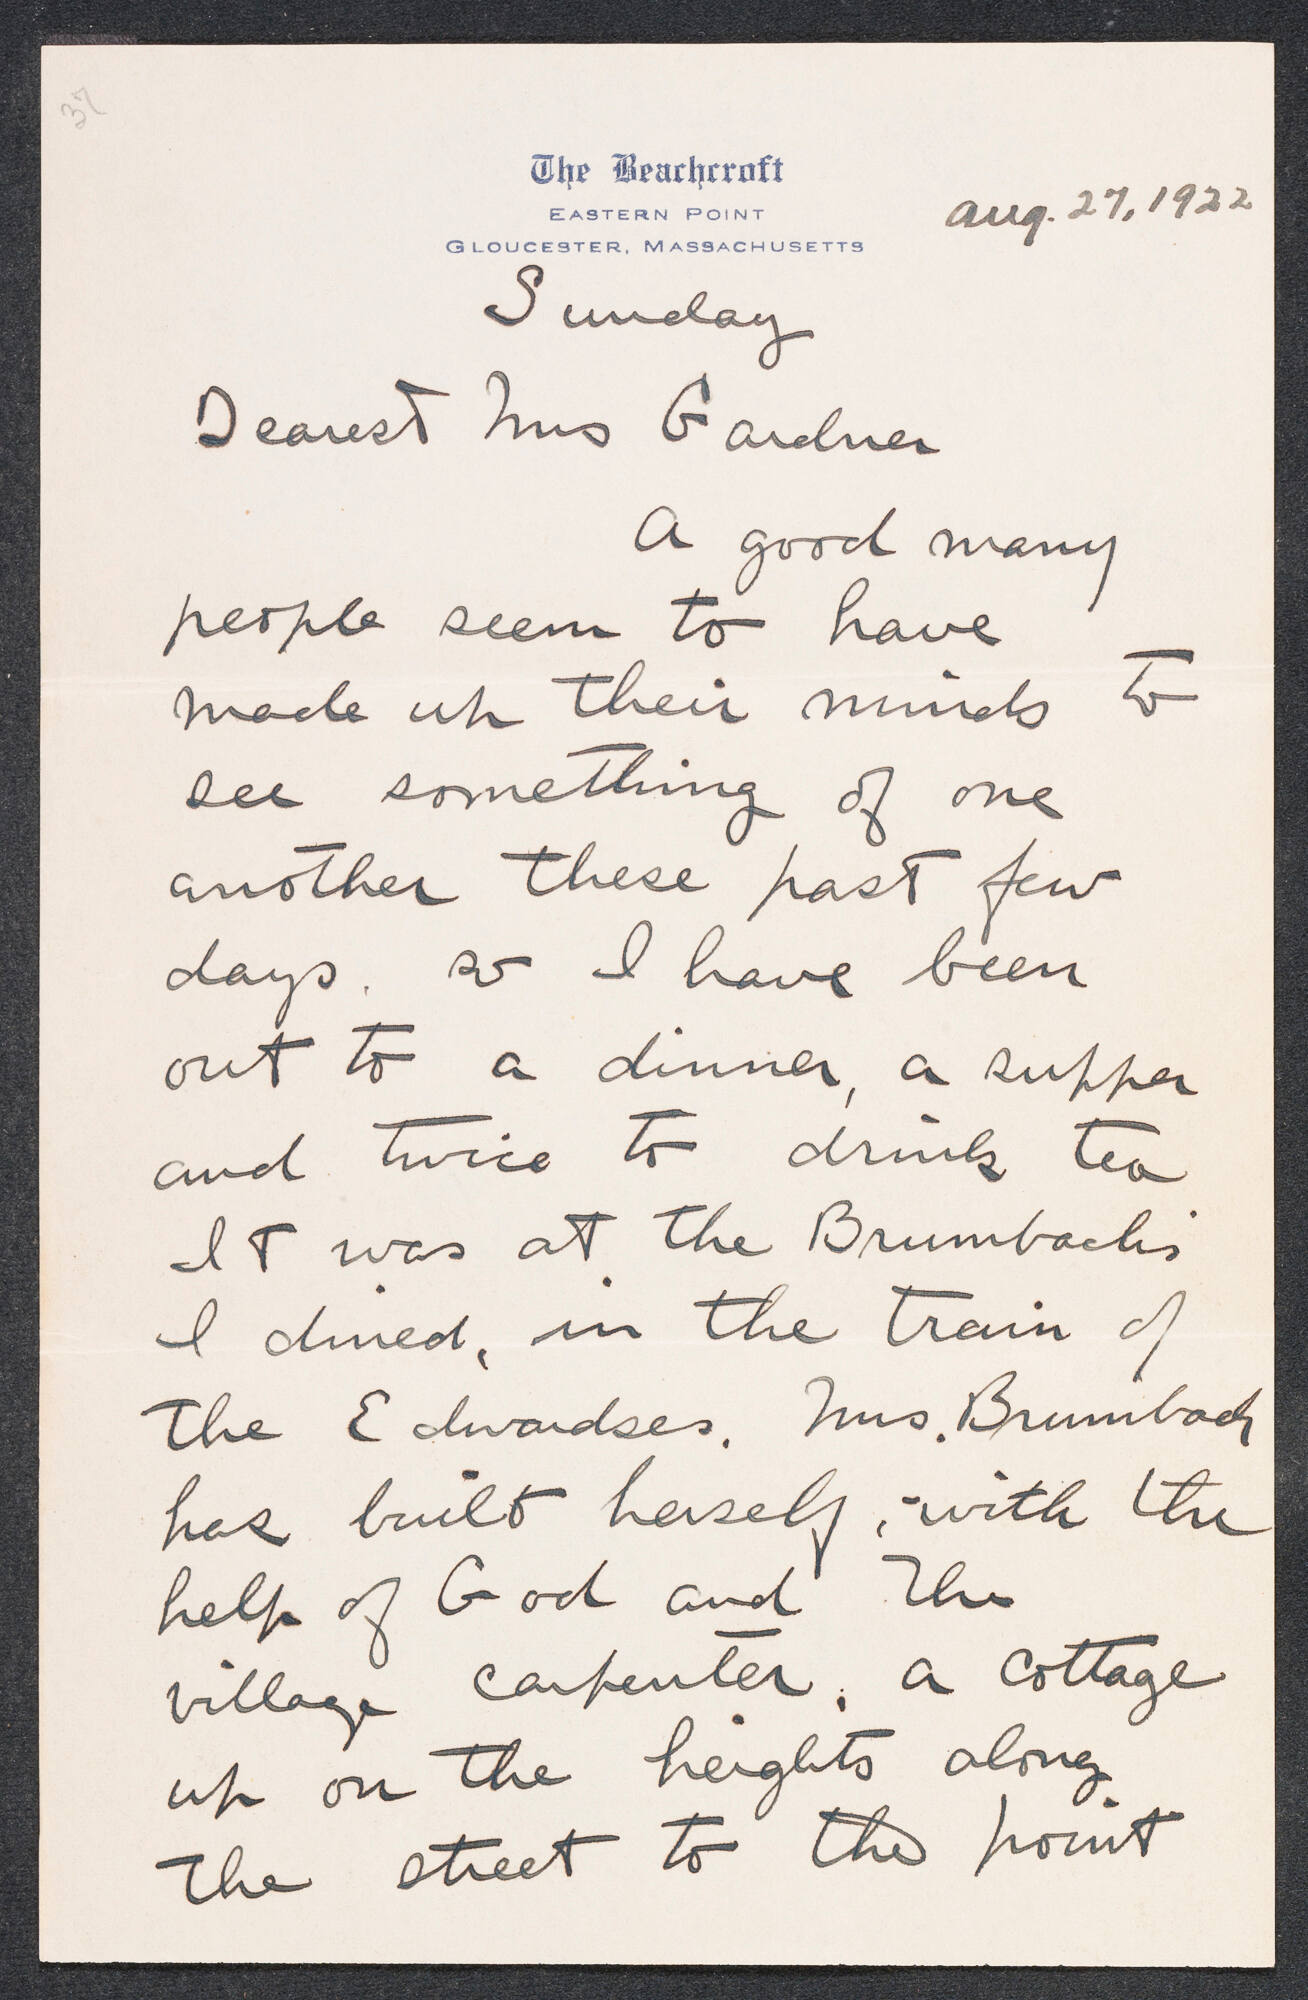 37
The Beachcroft
EASTERN POINT
GLOUCESTER, MASSACHUSETTS
Aug. 27, 1922
Sunday
Dearest Mrs Gardner
A good many
people seem to have
made up their minds to
see something of one
another these past few
days. so I have been
out to a dinner, a supper
and twice to drink tea
It was at the Brumbachs
I dined, in the train of
the Edwardses. Mrs. Brumbach
has built herself, with the
help of God and the
village carpenter, a cottage
up on the heights along
the street to the point